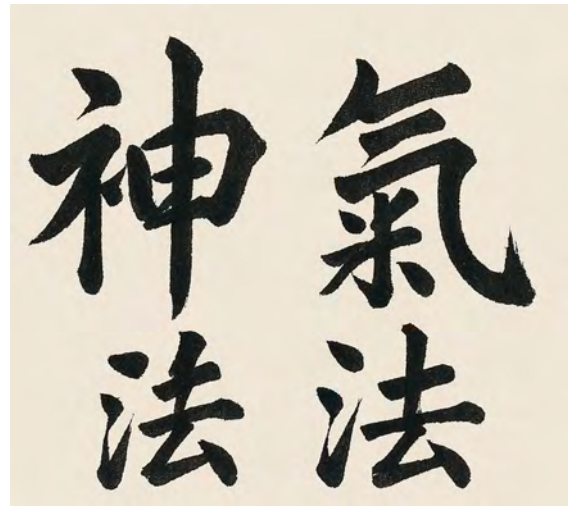 氣法
神法